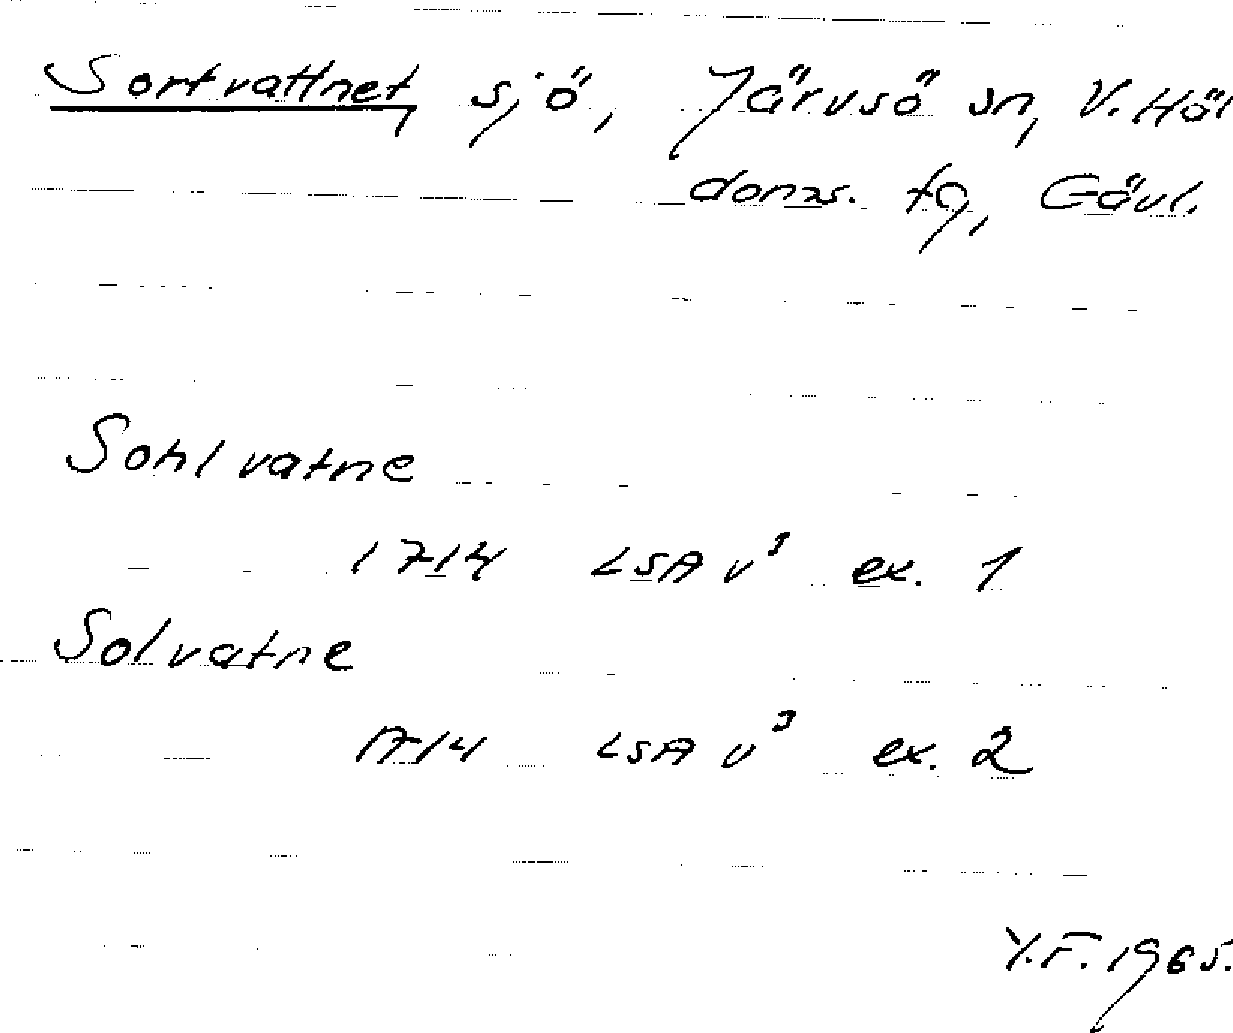 Sortvattnet, sjö, Järvsö sn, V. Häl
donas. tg, Gävl.
Sohlvatne
1714 LSA v³ ex. 1
Solvatne
1714 LSA v³ ex. 2
Y.F. 1965.